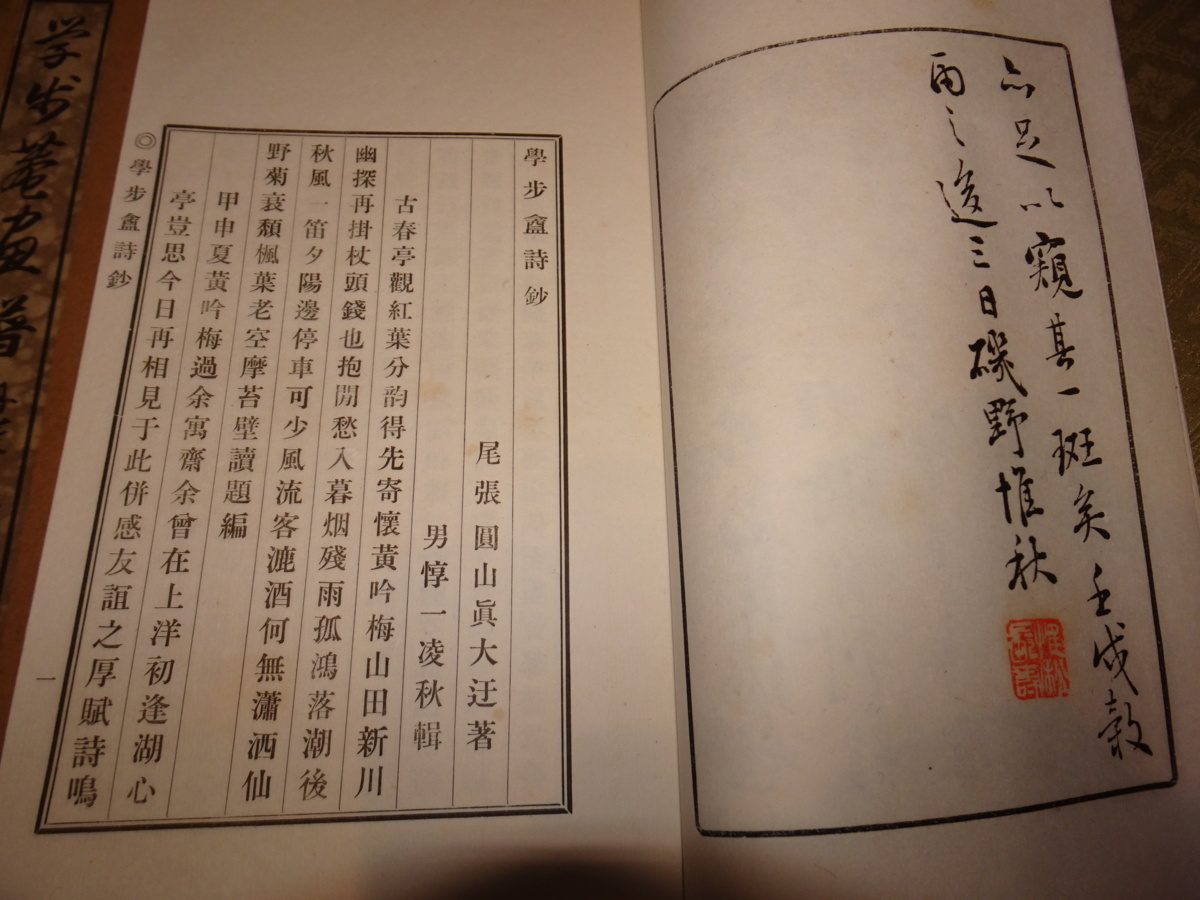 亦足以窺其一斑矣壬戌穀
雨之後三日磯野惟秋
學步盦詩鈔
尾張 圓山眞大迂著
男惇一凌秋輯
古春亭觀紅葉分韵得先寄懷黃吟梅山田新川
幽探再掛杖頭錢也抱閒愁入暮烟殘雨孤鴻落潮後
秋風一笛夕陽邊停車可少風流客漉酒何無瀟洒仙
野菊衰頹楓葉老空摩苔壁讀題編
甲申夏黃吟梅過余寓齋余曾在上洋初逢湖心
亭豈思今日再相見于此併感友誼之厚賦詩鳴
◎學步盦詩鈔
一
学步菴画譜